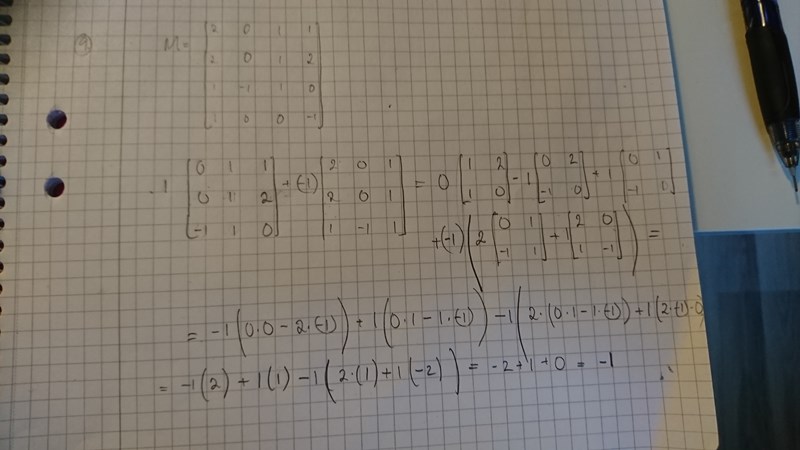 9) M = [2 0 1 1
2 0 1 2
1 -1 1 0
1 0 0 -1]
-1 [0 1 1; 0 1 2; -1 1 0] + (-1) [2 0 1; 2 0 1; 1 -1 1] = 0 [1 2; 1 0] - 1 [0 2; -1 0] + 1 [0 1; -1 1]
+(-1) (2 [0 1; -1 1] + 1 [2 0; 1 -1]) =
= -1(0·0 - 2·(-1)) + 1(0·1 - 1·(-1)) - 1(2·(0·1 - 1·(-1)) + 1(2·(-1)·0)
= -1(2) + 1(1) - 1(2·(1) + 1(-2)) = -2+1+0 = -1